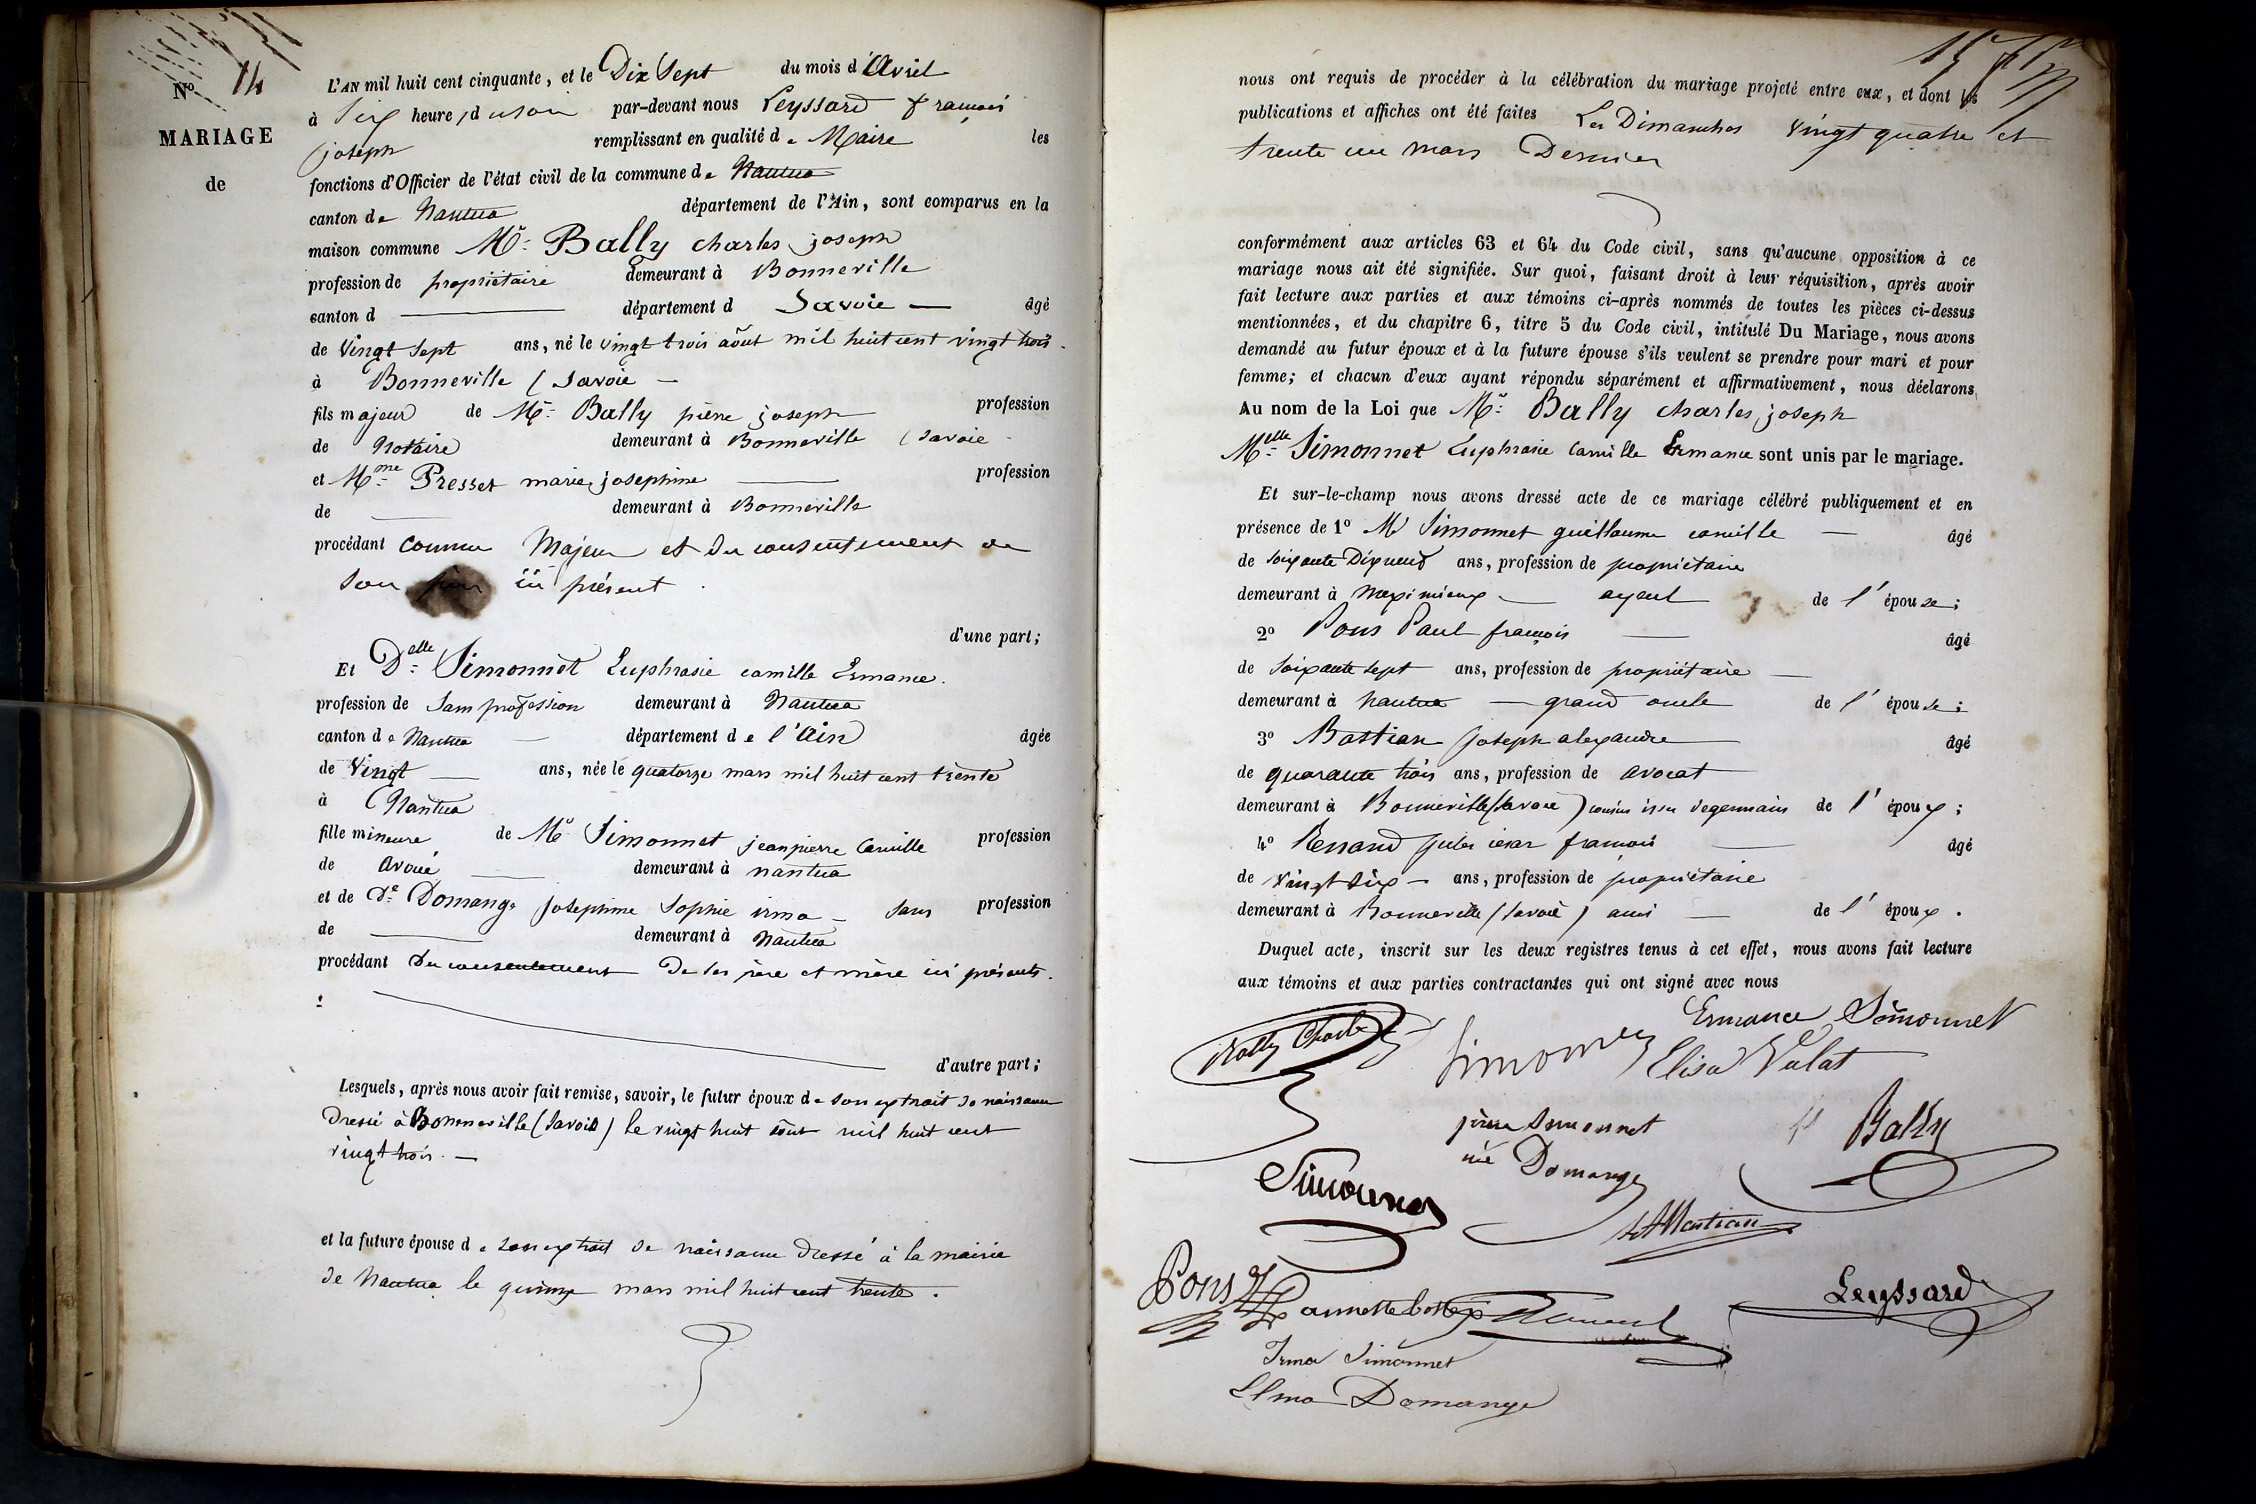 N° 14
MARIAGE
de
L'AN mil huit cent cinquante, et le Dix Sept du mois d'Avril
à Six heures du soir par-devant nous Leyssard françois
joseph remplissant en qualité de Maire les
fonctions d'Officier de l'état civil de la commune de Nantua
canton de Nantua département de l'Ain, sont comparus en la
maison commune Mr Bally charles joseph
profession de propriétaire demeurant à Bonneville
canton d département d Savoie — âgé
de Vingt Sept ans, né le vingt trois août mil huit cent vingt trois
à Bonneville (Savoie —
fils majeur de Mr Bally pierre joseph profession
de Notaire demeurant à Bonneville (Savoie
et Mme Presset marie josephine profession
de demeurant à Bonneville
procédant comme Majeur et du consentement de
son père ici présent.
d'une part;
Et Delle Simonnet Euphrasie camille Ermance.
profession de Sans profession demeurant à Nantua
canton de Nantua département de l'Ain âgée
de Vingt ans, née le quatorze mars mil huit cent trente
à Nantua
fille mineure de Mr Simonnet jean pierre Camille profession
de Avoué demeurant à nantua
et de De Domange Josephine Sophie irma — sans profession
de demeurant à Nantua
procédant du consentement de ses père et mère ici présents.
d'autre part;
Lesquels, après nous avoir fait remise, savoir, le futur époux de son extrait de naissance
Dressé à Bonneville (Savoie) le vingt huit août mil huit cent
vingt trois. —
et la future épouse de son extrait de naissance dressé à la mairie
de Nantua le quinze mars mil huit cent trente.
nous ont requis de procéder à la célébration du mariage projeté entre eux, et dont les
publications et affiches ont été faites Les Dimanches vingt quatre et
trente un mars Dernier
conformément aux articles 63 et 64 du Code civil, sans qu'aucune opposition à ce
mariage nous ait été signifiée. Sur quoi, faisant droit à leur réquisition, après avoir
fait lecture aux parties et aux témoins ci-après nommés de toutes les pièces ci-dessus
mentionnées, et du chapitre 6, titre 5 du Code civil, intitulé Du Mariage, nous avons
demandé au futur époux et à la future épouse s'ils veulent se prendre pour mari et pour
femme; et chacun d'eux ayant répondu séparément et affirmativement, nous déclarons
Au nom de la Loi que Mr Bally charles joseph
Melle Simonnet Euphrasie Camille Ermance sont unis par le mariage.
Et sur-le-champ nous avons dressé acte de ce mariage célébré publiquement et en
présence de 1° M Simonnet guillaume camille — âgé
de soixante Dix neuf ans, profession de propriétaire
demeurant à Meximieux — ayeul de l'épouse;
2° Pons Paul françois — âgé
de soixante sept ans, profession de propriétaire —
demeurant à nantua — grand oncle de l'épouse;
3° Bastian joseph alexandre âgé
de quarante trois ans, profession de avocat
demeurant à Bonneville (Savoie) cousin issu de germain de l'époux;
4° Renand jules césar françois âgé
de vingt six — ans, profession de propriétaire
demeurant à Bonneville (Savoie) ami de l'époux.
Duquel acte, inscrit sur les deux registres tenus à cet effet, nous avons fait lecture
aux témoins et aux parties contractantes qui ont signé avec nous
Ermance Simonnet
Bally Charles Simonnet Elisa Valat
Simonnet
née Domange
Bally
Simonnet
Bastian
Pons
Leyssard
Irma Simonnet
Elma Domange